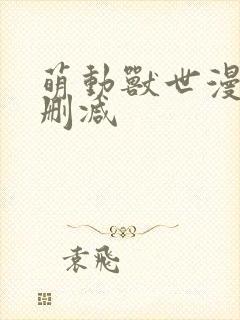 萌動獸世漫
删減
袁飛